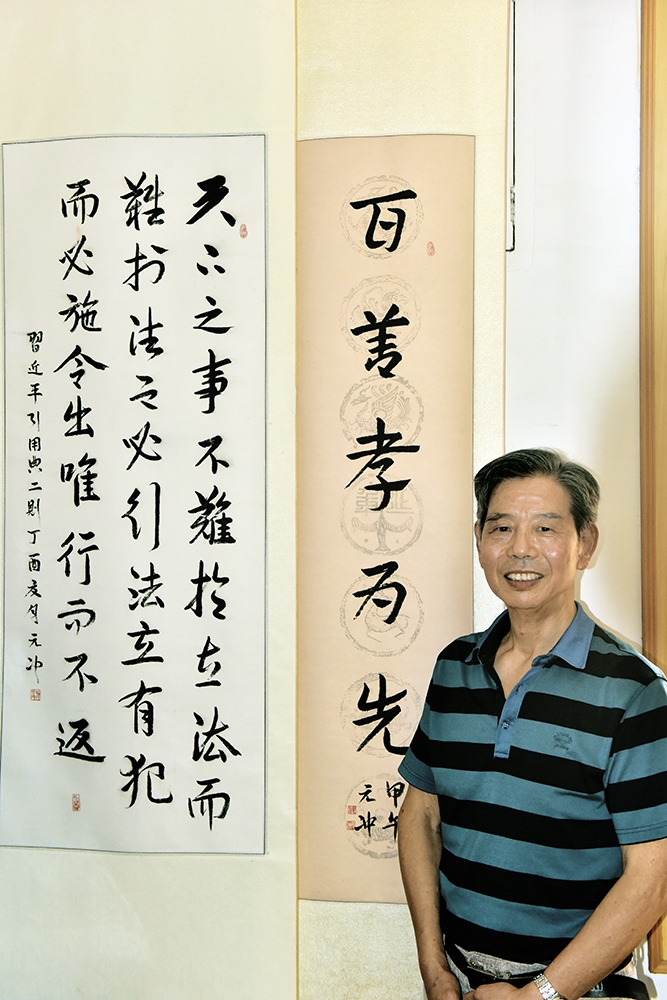 百善孝为先
甲午
元冲
天下之事不難於立法而
難於法之必行法立有犯
而必施令出唯行而不返
習近平引用典二则丁酉夏月元冲